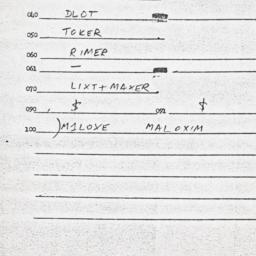 040 DLOT
050 TOKER
060 RIMER
061 —
070 LIXT+MAXER
090 $ 091 $
100 )M1LOXE MALOXIM